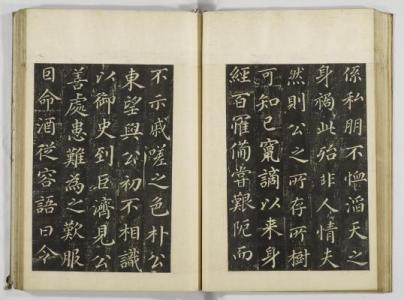 係私朋不恤滔天之
身禍此殆非人情夫
然則公之所存所樹
可知已竄謫以来身
經百罹備嘗艱阨而
不示戚嗟之色朴公
東望與公初不相識
以御史到巨濟見公
善處患難為之歎服
因命酒從容語曰今